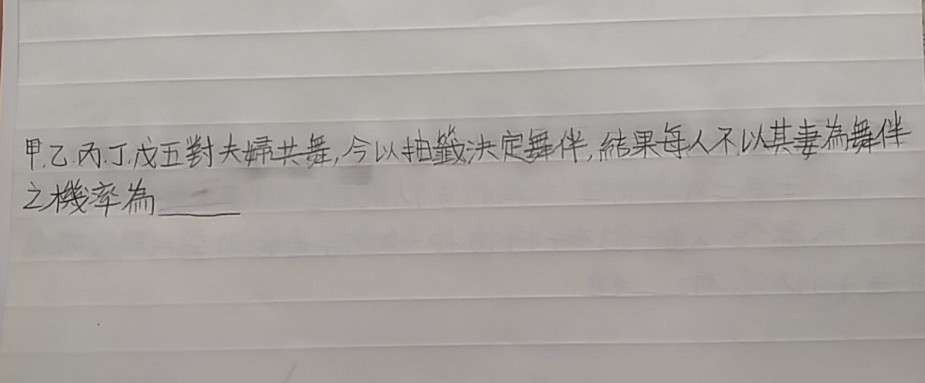 甲.乙.丙.丁.戊五對夫婦共舞,今以抽籤決定舞伴,結果每人不以其妻為舞伴
之機率為_____